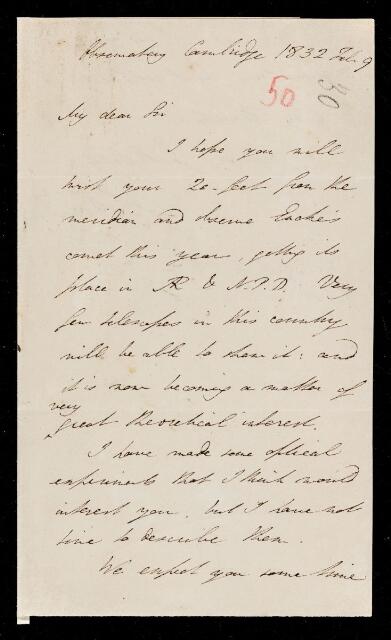 Observatory Cambridge 1832 Feb. 9
50
50
My dear Sir
I hope you will
twist your 20-feet from the
meridian and observe Encke's
comet this year, getting its
place in AR & N.P.D. Very
few telescopes in this country
will be able to shew it: and
it is now becoming a matter of
very
great theoretical interest.
I have made some optical
experiments that I think would
interest you, but I have not
time to describe them.
We expect you some time